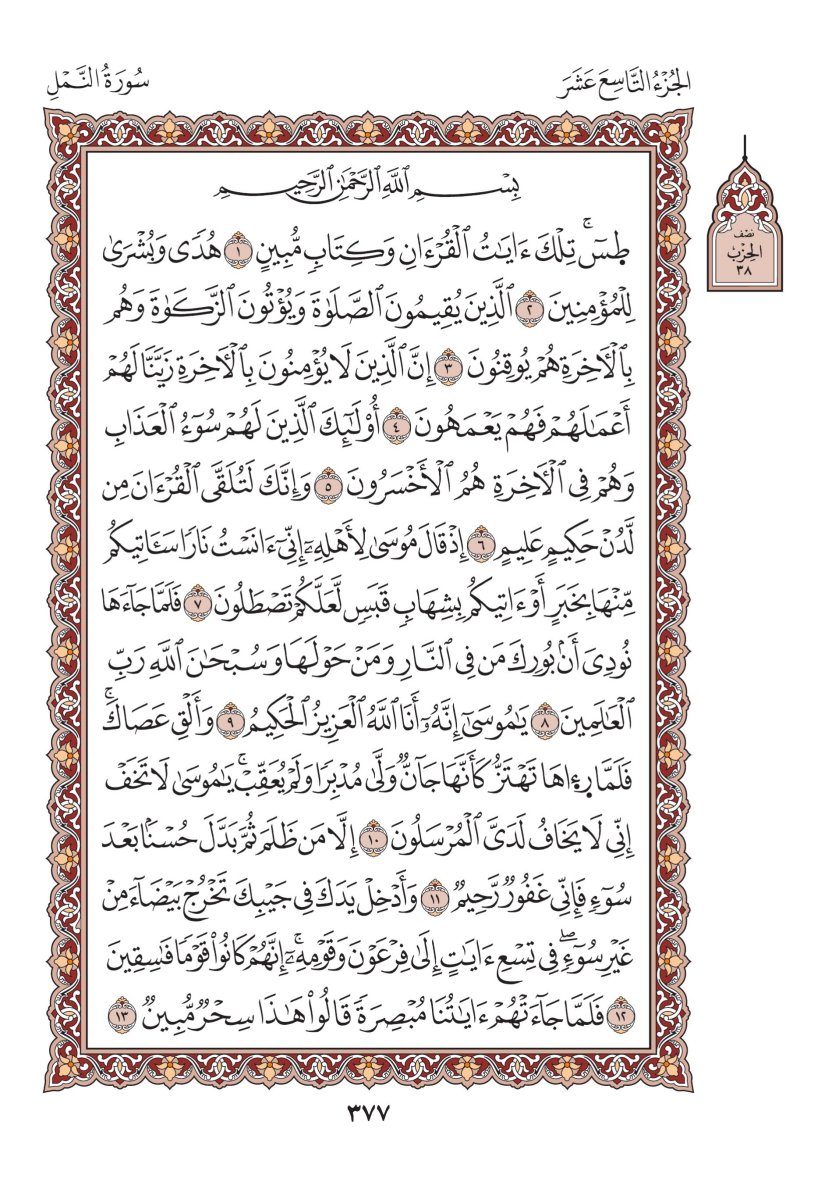 الجُزْءُ التَّاسِعَ عَشَرَ
سُورَةُ النَّمْلِ
نصف
الحِزْبُ
٣٨
بِسْمِ ٱللَّهِ ٱلرَّحْمَٰنِ ٱلرَّحِيمِ
طسٓۚ تِلْكَ ءَايَٰتُ ٱلْقُرْءَانِ وَكِتَابٍ مُّبِينٍ ١ هُدًى وَبُشْرَىٰ
لِلْمُؤْمِنِينَ ٢ ٱلَّذِينَ يُقِيمُونَ ٱلصَّلَوٰةَ وَيُؤْتُونَ ٱلزَّكَوٰةَ وَهُم
بِٱلْأَخِرَةِ هُمْ يُوقِنُونَ ٣ إِنَّ ٱلَّذِينَ لَا يُؤْمِنُونَ بِٱلْأَخِرَةِ زَيَّنَّا لَهُمْ
أَعْمَٰلَهُمْ فَهُمْ يَعْمَهُونَ ٤ أُوْلَٰٓئِكَ ٱلَّذِينَ لَهُمْ سُوٓءُ ٱلْعَذَابِ
وَهُمْ فِى ٱلْأَخِرَةِ هُمُ ٱلْأَخْسَرُونَ ٥ وَإِنَّكَ لَتُلَقَّى ٱلْقُرْءَانَ مِن
لَّدُنْ حَكِيمٍ عَلِيمٍ ٦ إِذْ قَالَ مُوسَىٰ لِأَهْلِهِۦٓ إِنِّىٓ ءَانَسْتُ نَارًا سَـَٔاتِيكُم
مِّنْهَا بِخَبَرٍ أَوْ ءَاتِيكُم بِشِهَابٍ قَبَسٍ لَّعَلَّكُمْ تَصْطَلُونَ ٧ فَلَمَّا جَآءَهَا
نُودِىَ أَنۢ بُورِكَ مَن فِى ٱلنَّارِ وَمَنْ حَوْلَهَا وَسُبْحَٰنَ ٱللَّهِ رَبِّ
ٱلْعَٰلَمِينَ ٨ يَٰمُوسَىٰٓ إِنَّهُۥٓ أَنَا ٱللَّهُ ٱلْعَزِيزُ ٱلْحَكِيمُ ٩ وَأَلْقِ عَصَاكَۚ
فَلَمَّا رَءَاهَا تَهْتَزُّ كَأَنَّهَا جَآنٌّ وَلَّىٰ مُدْبِرًا وَلَمْ يُعَقِّبْۚ يَٰمُوسَىٰ لَا تَخَفْ
إِنِّى لَا يَخَافُ لَدَىَّ ٱلْمُرْسَلُونَ ١٠ إِلَّا مَن ظَلَمَ ثُمَّ بَدَّلَ حُسْنًۢا بَعْدَ
سُوٓءٍ فَإِنِّى غَفُورٌ رَّحِيمٌ ١١ وَأَدْخِلْ يَدَكَ فِى جَيْبِكَ تَخْرُجْ بَيْضَآءَ مِنْ
غَيْرِ سُوٓءٍۖ فِى تِسْعِ ءَايَٰتٍ إِلَىٰ فِرْعَوْنَ وَقَوْمِهِۦٓۚ إِنَّهُمْ كَانُواْ قَوْمًا فَٰسِقِينَ
١٢ فَلَمَّا جَآءَتْهُمْ ءَايَٰتُنَا مُبْصِرَةً قَالُواْ هَٰذَا سِحْرٌ مُّبِينٌ ١٣
٣٧٧